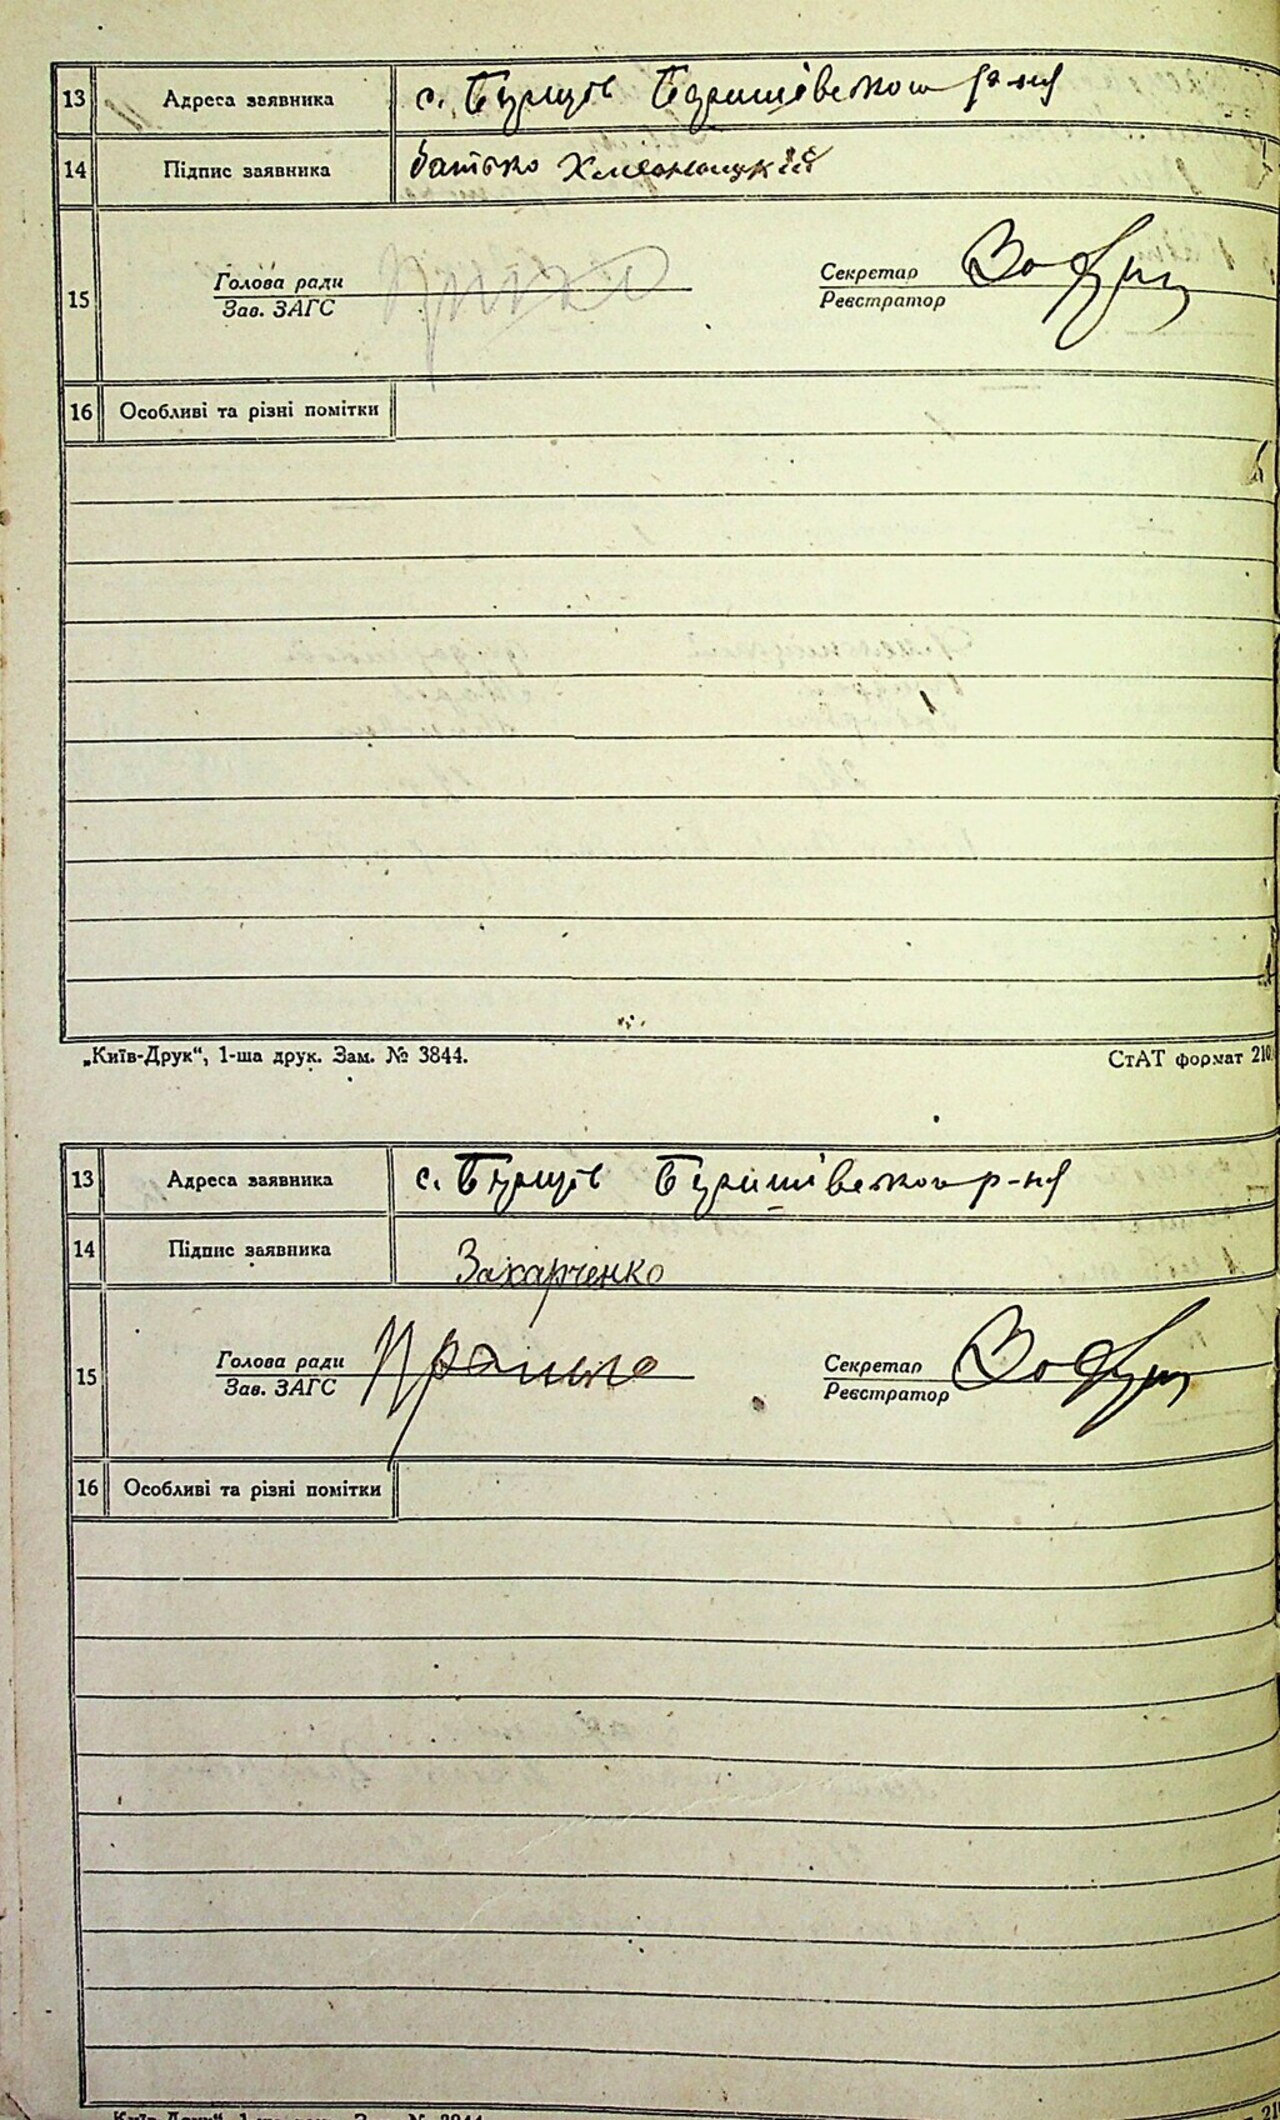 13 Адреса заявника с. Бзрщів Баришівського р-ну
14 Підпис заявника батько Хмельницкий
Голова ради Секретар
15
Зав. ЗАГС Реєстратор
16 Особливі та різні помітки
„Київ-Друк“, 1-ша друк. Зам. № 3844. СтАТ формат 210
13 Адреса заявника с. Баришівського р-ну
14 Підпис заявника Захарченко
Голова ради Секретар
15
Зав. ЗАГС Реєстратор
16 Особливі та різні помітки